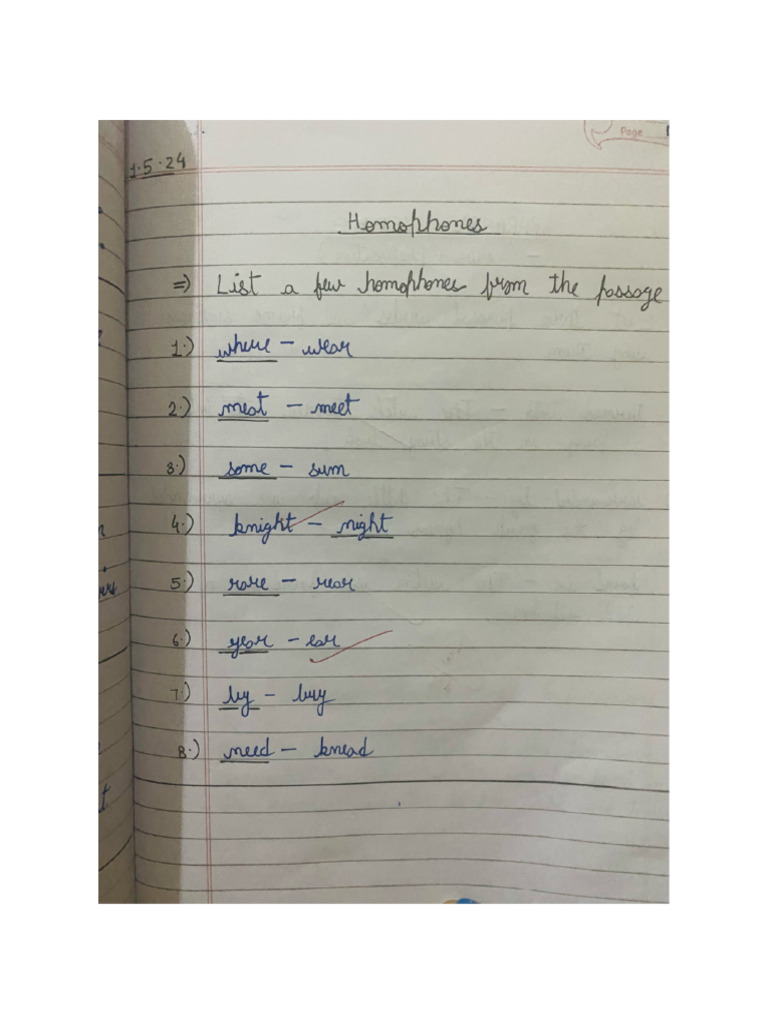 Page
1.5.24
Homophones
⇒) List a few homophones from the passage
1.) where - wear
2.) meat - meet
3.) some - sum
4.) knight - night
5.) rare - rear
6.) year - ear
7.) by - buy
8.) need - knead